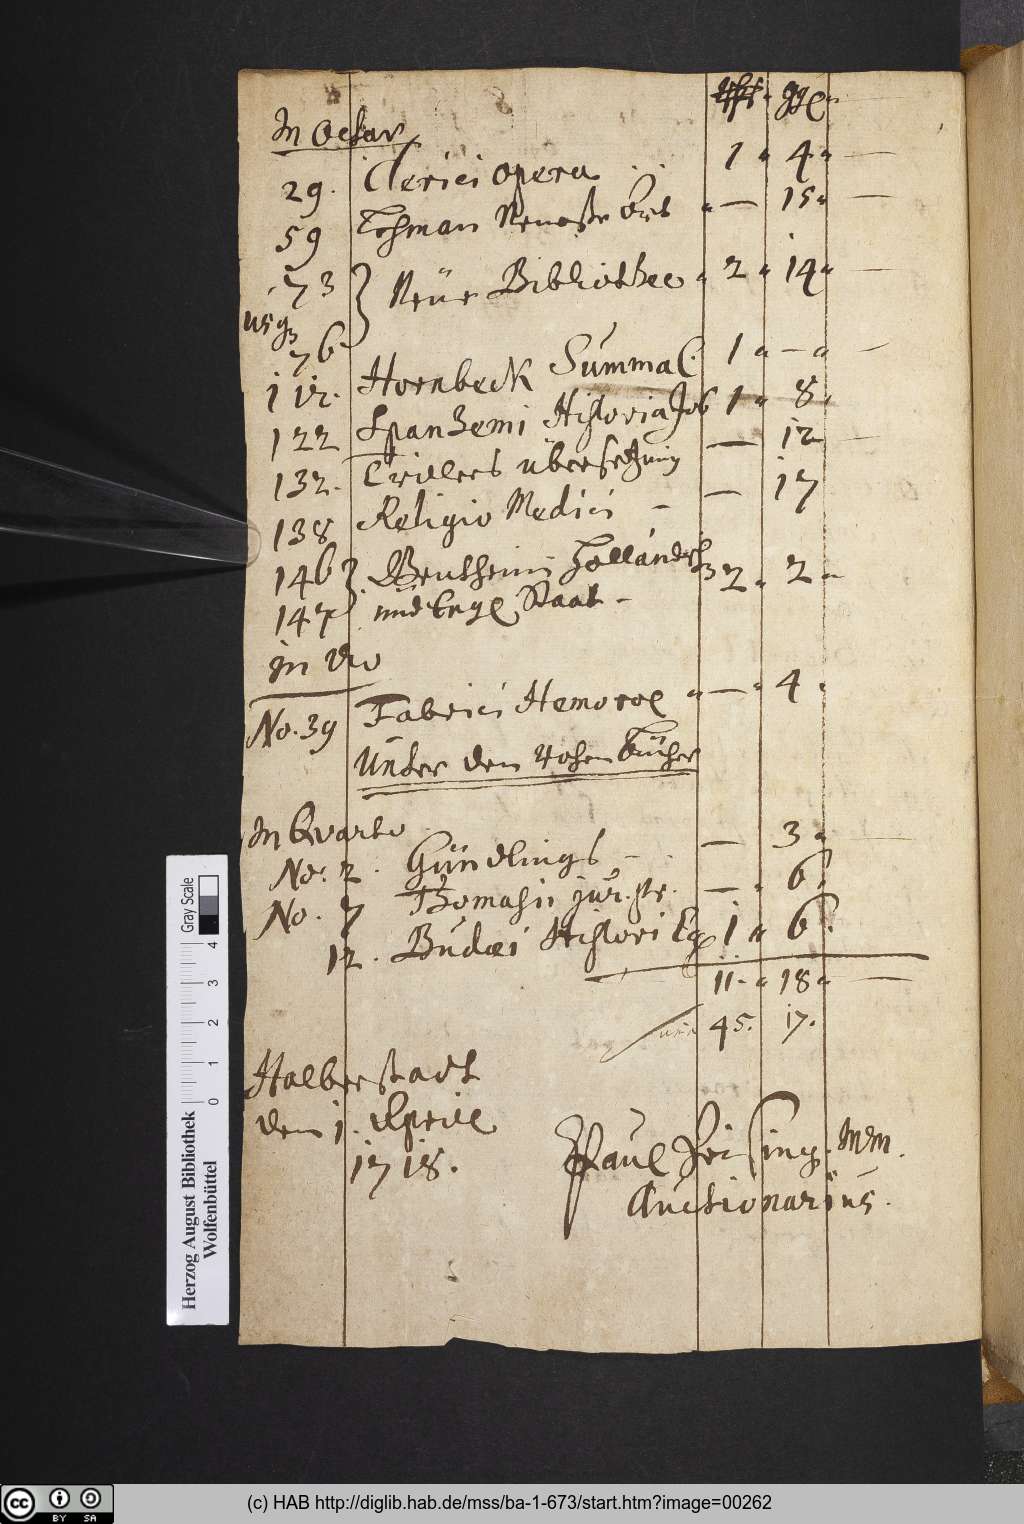 ggl
In Octav
29. Clerici opera 1 4 —
59 Lehman Neueste — 15 —
73
Neue Bibliothec 2 14 —
76
112. Hornbeck Summa C. 1 — —
122 Spanhemi Historia Job 1 8
132. Crillers übersetzung — 12 —
138 Religio Medici — — 17
146 Benthemi Holländisch 2 2
147 und Engl Staat -
in
No. 39 Fabrici Hemorol — 4
Unter den rohen Bücher
In Qvarto
No. 2. Gündlings - — 3 —
No. 7 Thomasii jur. — 6
12. Budæi Histori Ecc 1 6
11 18 —
45. 17.
Halberstadt
den 1. Aprill
1718.
Paul
Auctionarius.
Gray Scale
0 1 2 3 4
Herzog August Bibliothek
Wolfenbüttel
cc BY SA
(c) HAB http://diglib.hab.de/mss/ba-1-673/start.htm?image=00262